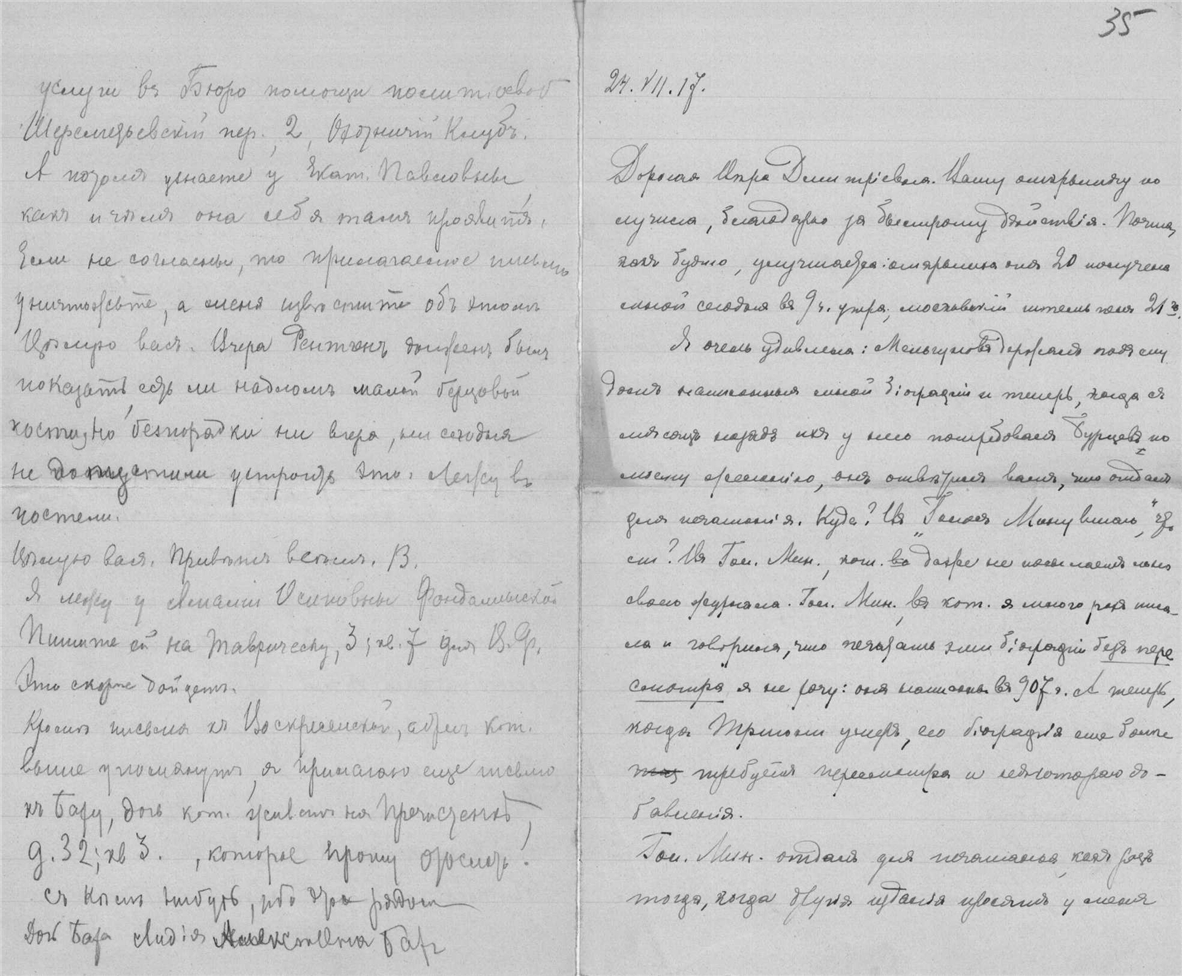 услуги въ Бюро помощи политі освоб
Шереметьевскій пер., 2, Охотничій Клубъ.
А потомъ узнаете у Екат. Павловны,
какъ и чѣмъ она себя тамъ проявитъ.
Если не согласны, то прилагаемое письмо
уничтожьте, а меня извѣстите объ этомъ
Цѣлую васъ. Вчера Рентгенъ долженъ былъ
показать есть ли надломъ малой берцовой
кости, но безпорядки ни вчера, ни сегодня
не допустили устроить это. Лежу въ
постели.
Цѣлую васъ. Привѣтъ всѣмъ. В.
Я лежу у Амаліи Осиповны Фондаминской
Пишите ей на Таврическу, 3; кв. 7 для В. Ф.
Это скорѣе дойдетъ.
Кромѣ письма къ Воскресенской, адресъ кот.
выше упомянутъ, я прилагаю еще письмо
къ Баху, дочь кот. живетъ на Пречистенкѣ,
д. 32; кв 3. , которое прошу отослать
съ кѣмъ нибудь, ибо это рядомъ
Дочь Баха Лидія Алексѣевна Бахъ
35
24. VII. 17.
Дорогая Вѣра Дмитріевна. Вашу открытку по
лучила, благодарю за быстроту дѣйствія. Почта,
какъ будто, улучшается: открытка отъ 20 получена
мной сегодня въ 9 ч. утра; московскій штемпель 21го.
Я очень удивлена: Мельгуновъ держалъ подъ спу
домъ написанныя мной біографіи и теперь, когда съ
мѣсяцъ назадъ ихъ у него потребовалъ Бурцевъ по
моему желанію, онъ отвѣтилъ вамъ, что отдалъ
для печатанія. Куда? Въ "Голосъ Минувшаго", что
ли? Въ Гол. Мин., кот. даже не посылаетъ мнѣ
своего журнала. Гол. Мин., въ кот. я много разъ писа-
ла и говорила, что печатать эти біографіи безъ пере
смотра я не хочу: они написаны въ 907 г. А теперь,
когда Тригони умеръ, его біографія еще болѣе
требуетъ пересмотра и нѣкотораго до-
бавленія.
Гол. Мин. отдалъ для печатанія, какъ разъ
тогда, когда другія изданія просятъ у меня